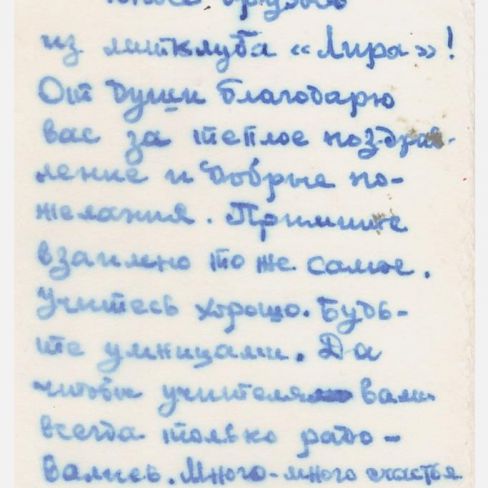 друзья
из литклуба «Лира»!
От души благодарю
вас за теплое поздрав-
ление и добрые по-
желания. Примите
взаимно то же самое.
Учитесь хорошо. Будь-
те умницами. Да
чтобы учителя вами
всегда только радо-
вались. Много-много счастья